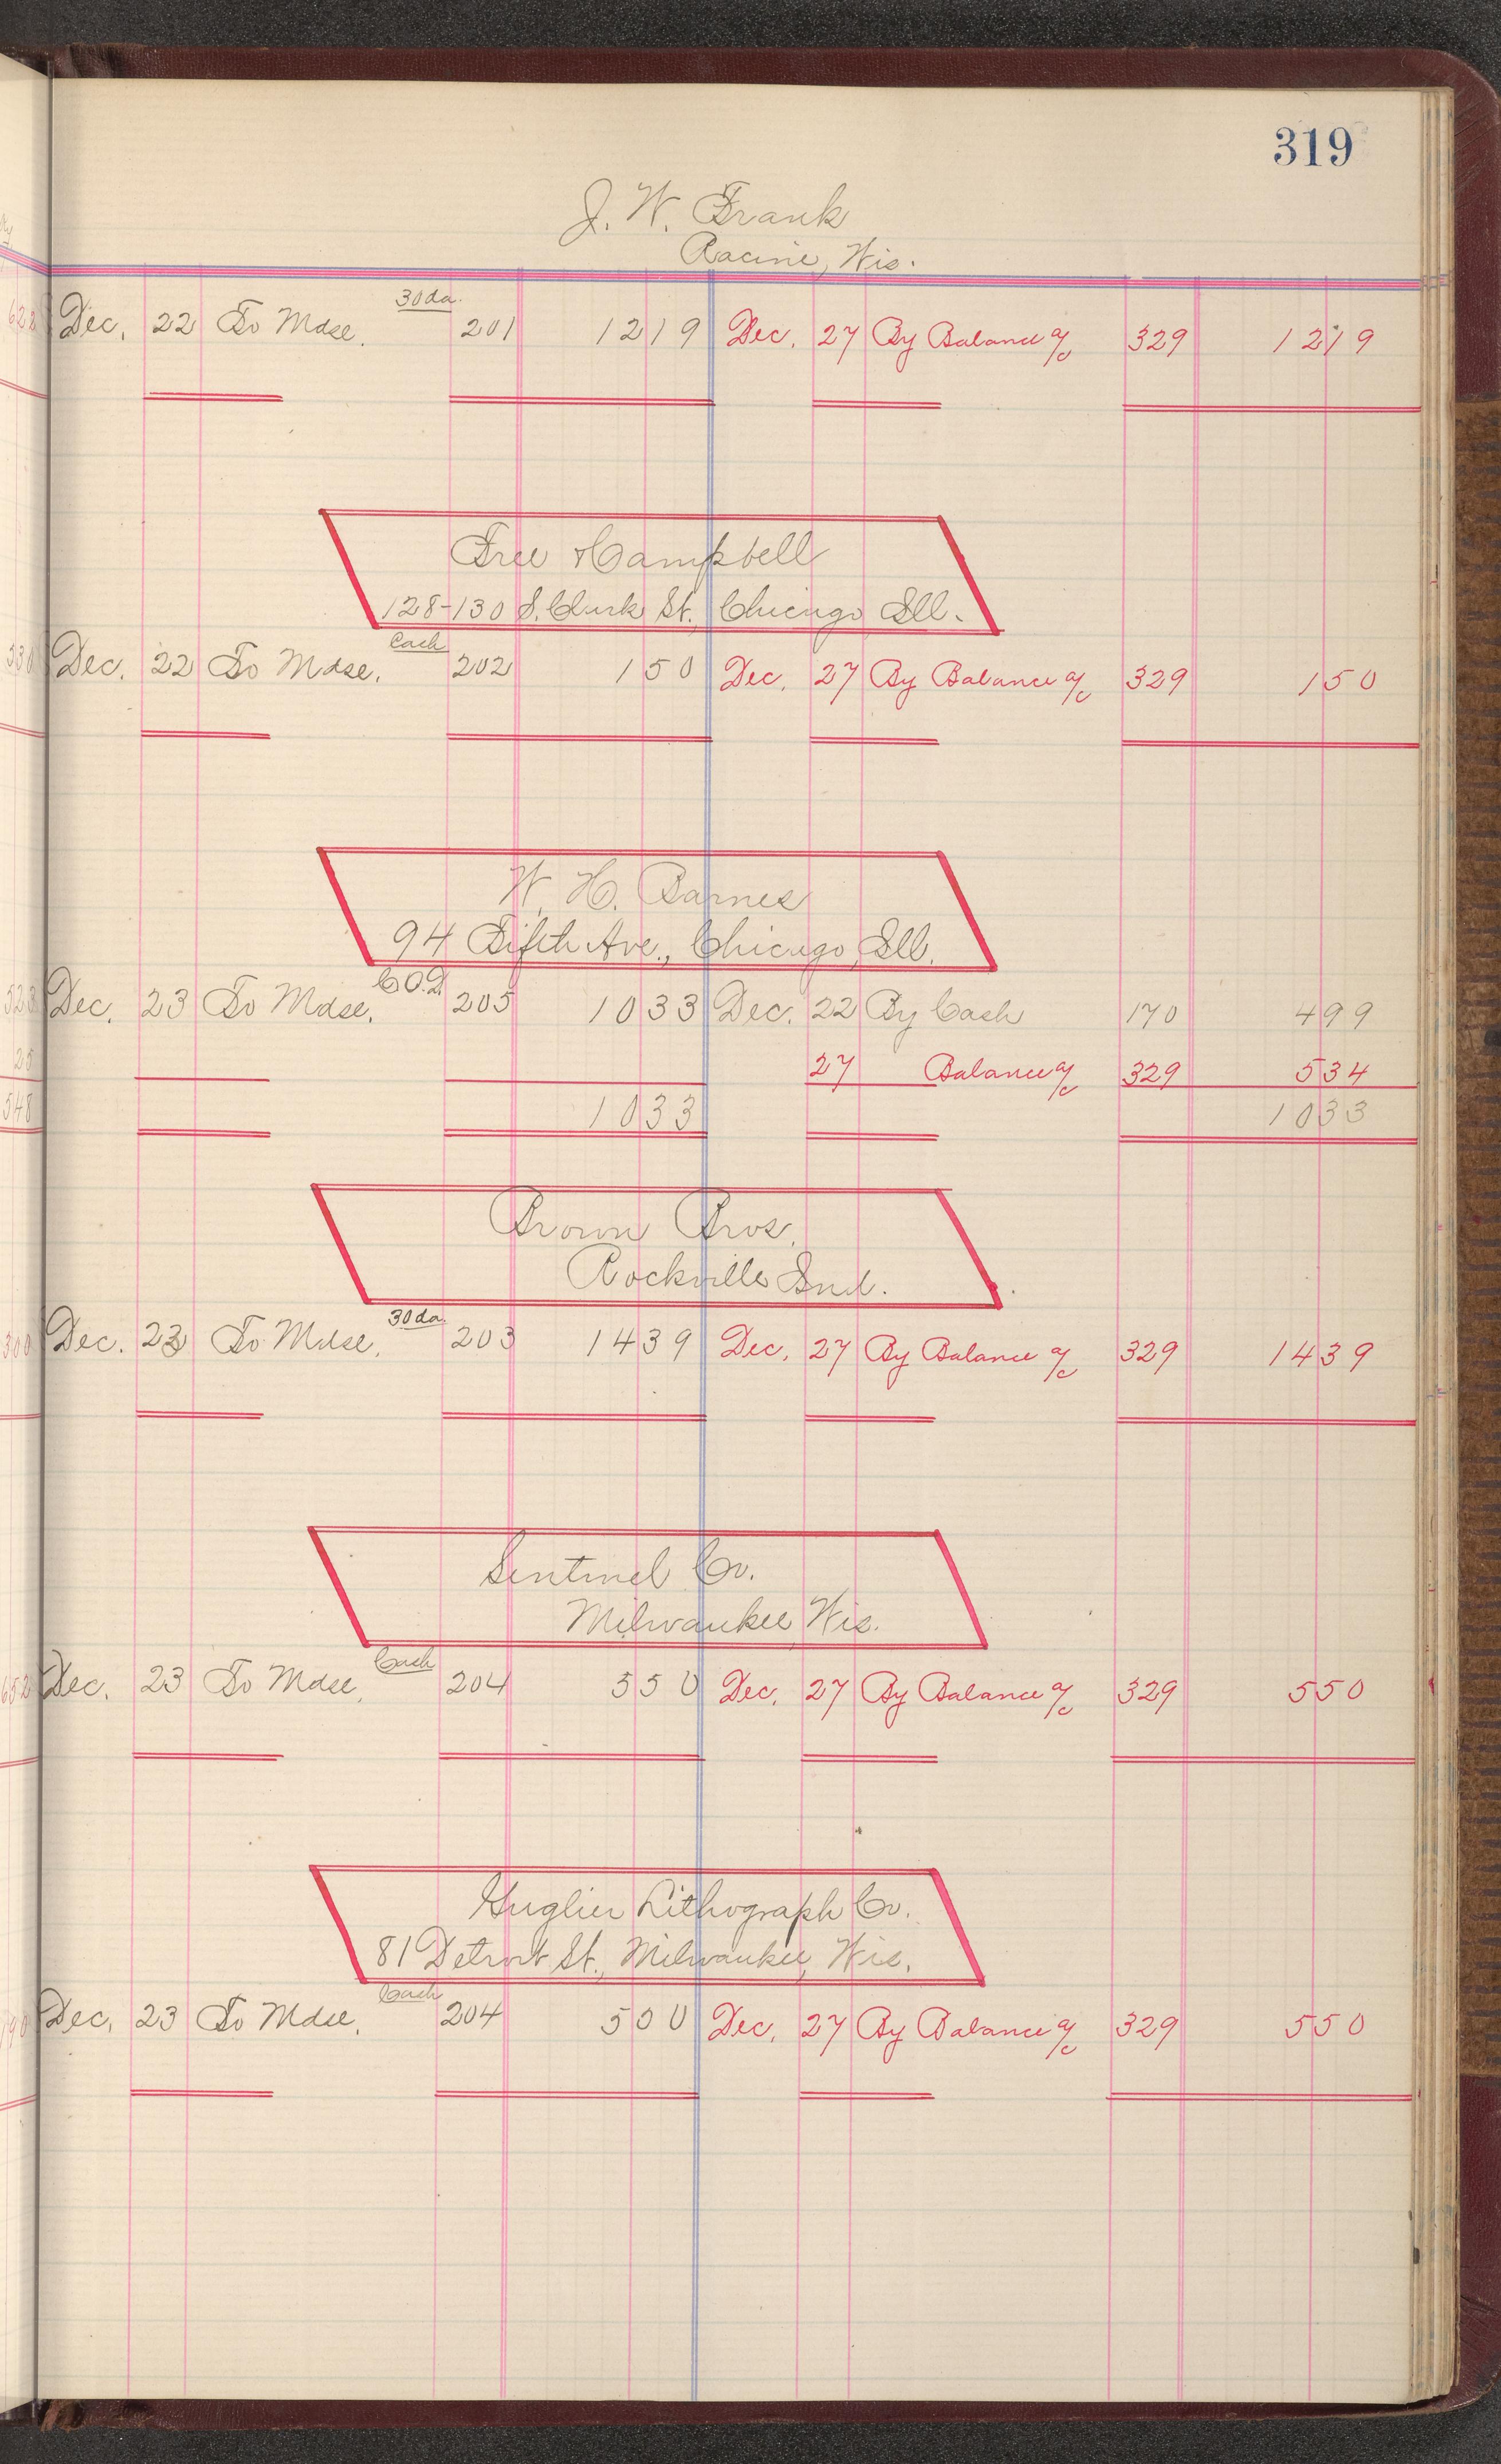 319
J. W. Frank
Racine, Wis.
30 da.
Dec. 22 To Mdse. 201 1219 Dec. 27 By Balance a/c 329 1219
Free & Campbell
128-130 S. Clark St., Chicago Ill.
Cash
Dec. 22 To Mdse. 202 150 Dec. 27 By Balance a/c 329 150
W. H. Barnes
94 Fifth Ave., Chicago, Ill.
C.O.D.
Dec. 23 To Mdse. 205 1033 Dec. 22 By Cash 170 499
27 Balance a/c 329 534
1033 1033
Brown Bros.
Rockville Ind.
30 da.
Dec. 23 To Mdse. 203 1439 Dec. 27 By Balance a/c 329 1439
Sentinel Co.
Milwaukee, Wis.
Cash
Dec. 23 To Mdse. 204 550 Dec. 27 By Balance a/c 329 550
Gugler Lithograph Co.
81 Detroit St., Milwaukee, Wis.
Cash
Dec. 23 To Mdse. 204 500 Dec. 27 By Balance a/c 329 550